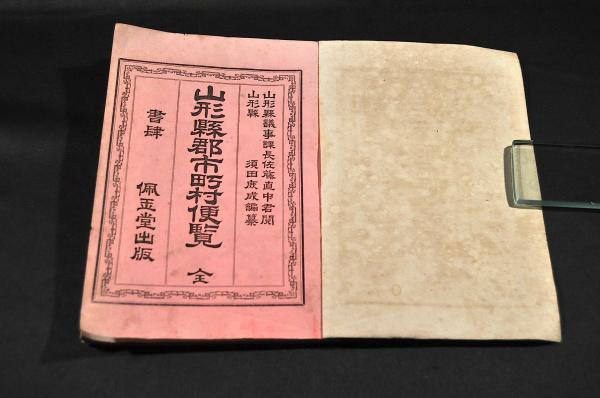 山形縣議事課長佐藤直中君閲
山形縣 須田庋成編纂
山形縣郡市町村便覧 全
書肆 佩玉堂出版